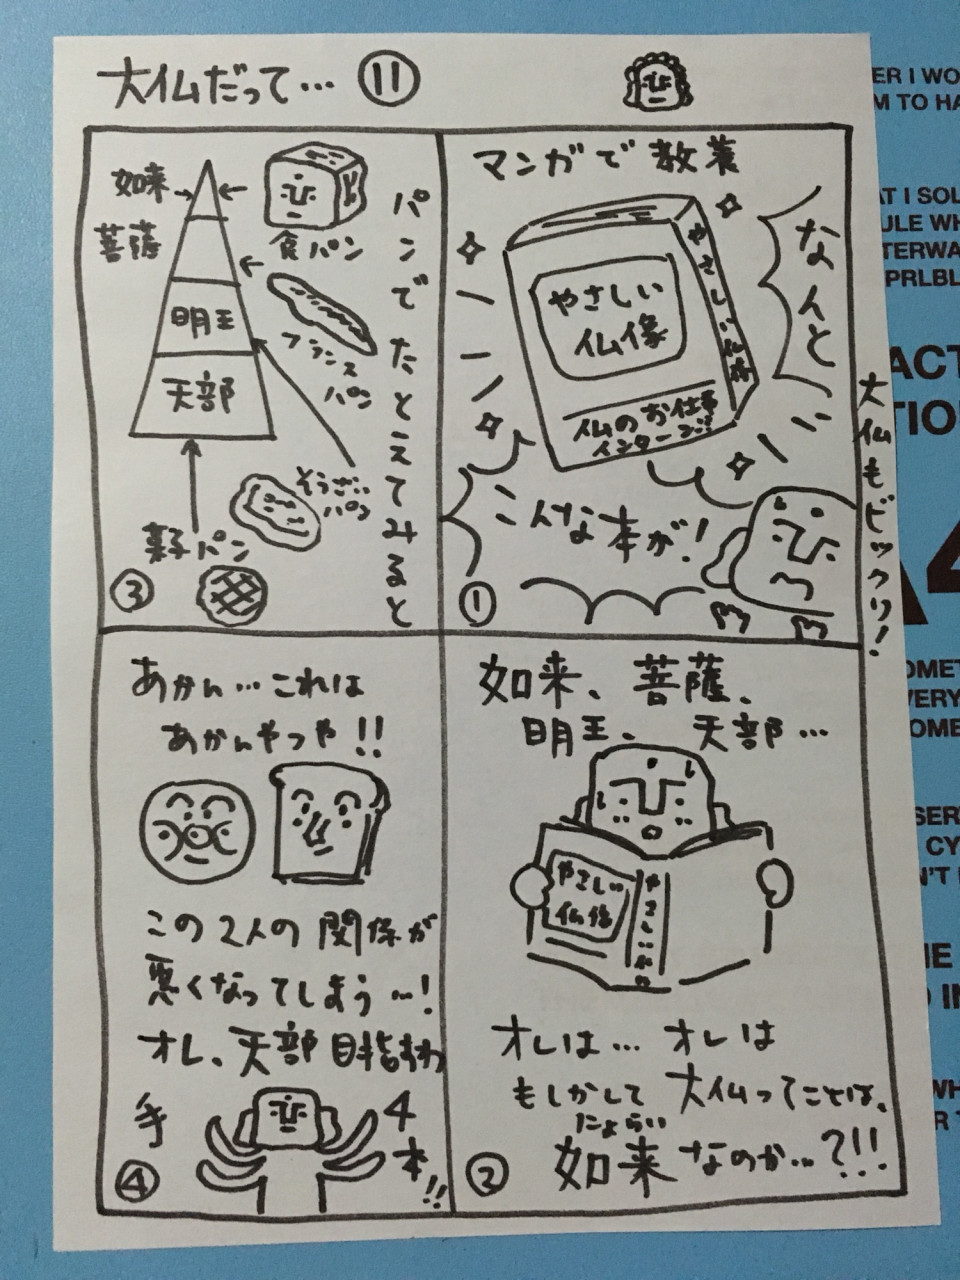 大仏だって… ⑪
マンガで教養
なんと
やさしい
仏像
やさしい仏像
仏のお仕事
インターン!!
こんな本が!
大仏もビックリ!
①
如来、菩薩、
明王、天部…
やさしい
仏像
オレは… オレは
もしかして 大仏ってことは、
にょらい
如来なのか…?!!
②
パンでたとえてみると
如来
菩薩
明王
天部
食パン
フランス
パン
そうざい
パン
菓子パン
③
あかん…これは
あかんやつや!!
この2人の関係が
悪くなってしまう…!
オレ、天部目指すわ
手
4
本!!
④
ER I WO
M TO HA
AT I SOL
ULE WH
TERWA
PRLBL
ACT
TIO
A4
OMET
VERY
OME
SER
CY
N'T
HE
O IN
WH
R